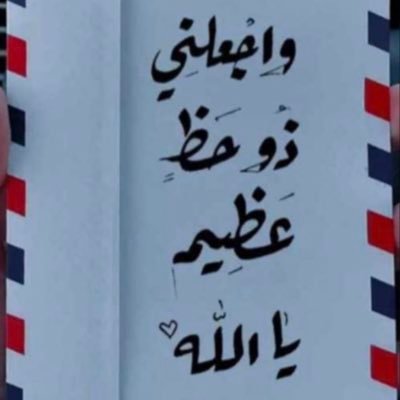 وَاجْعلنِي
ذُو حَظٍ
عَظِيم
يا اللّٰه ♡